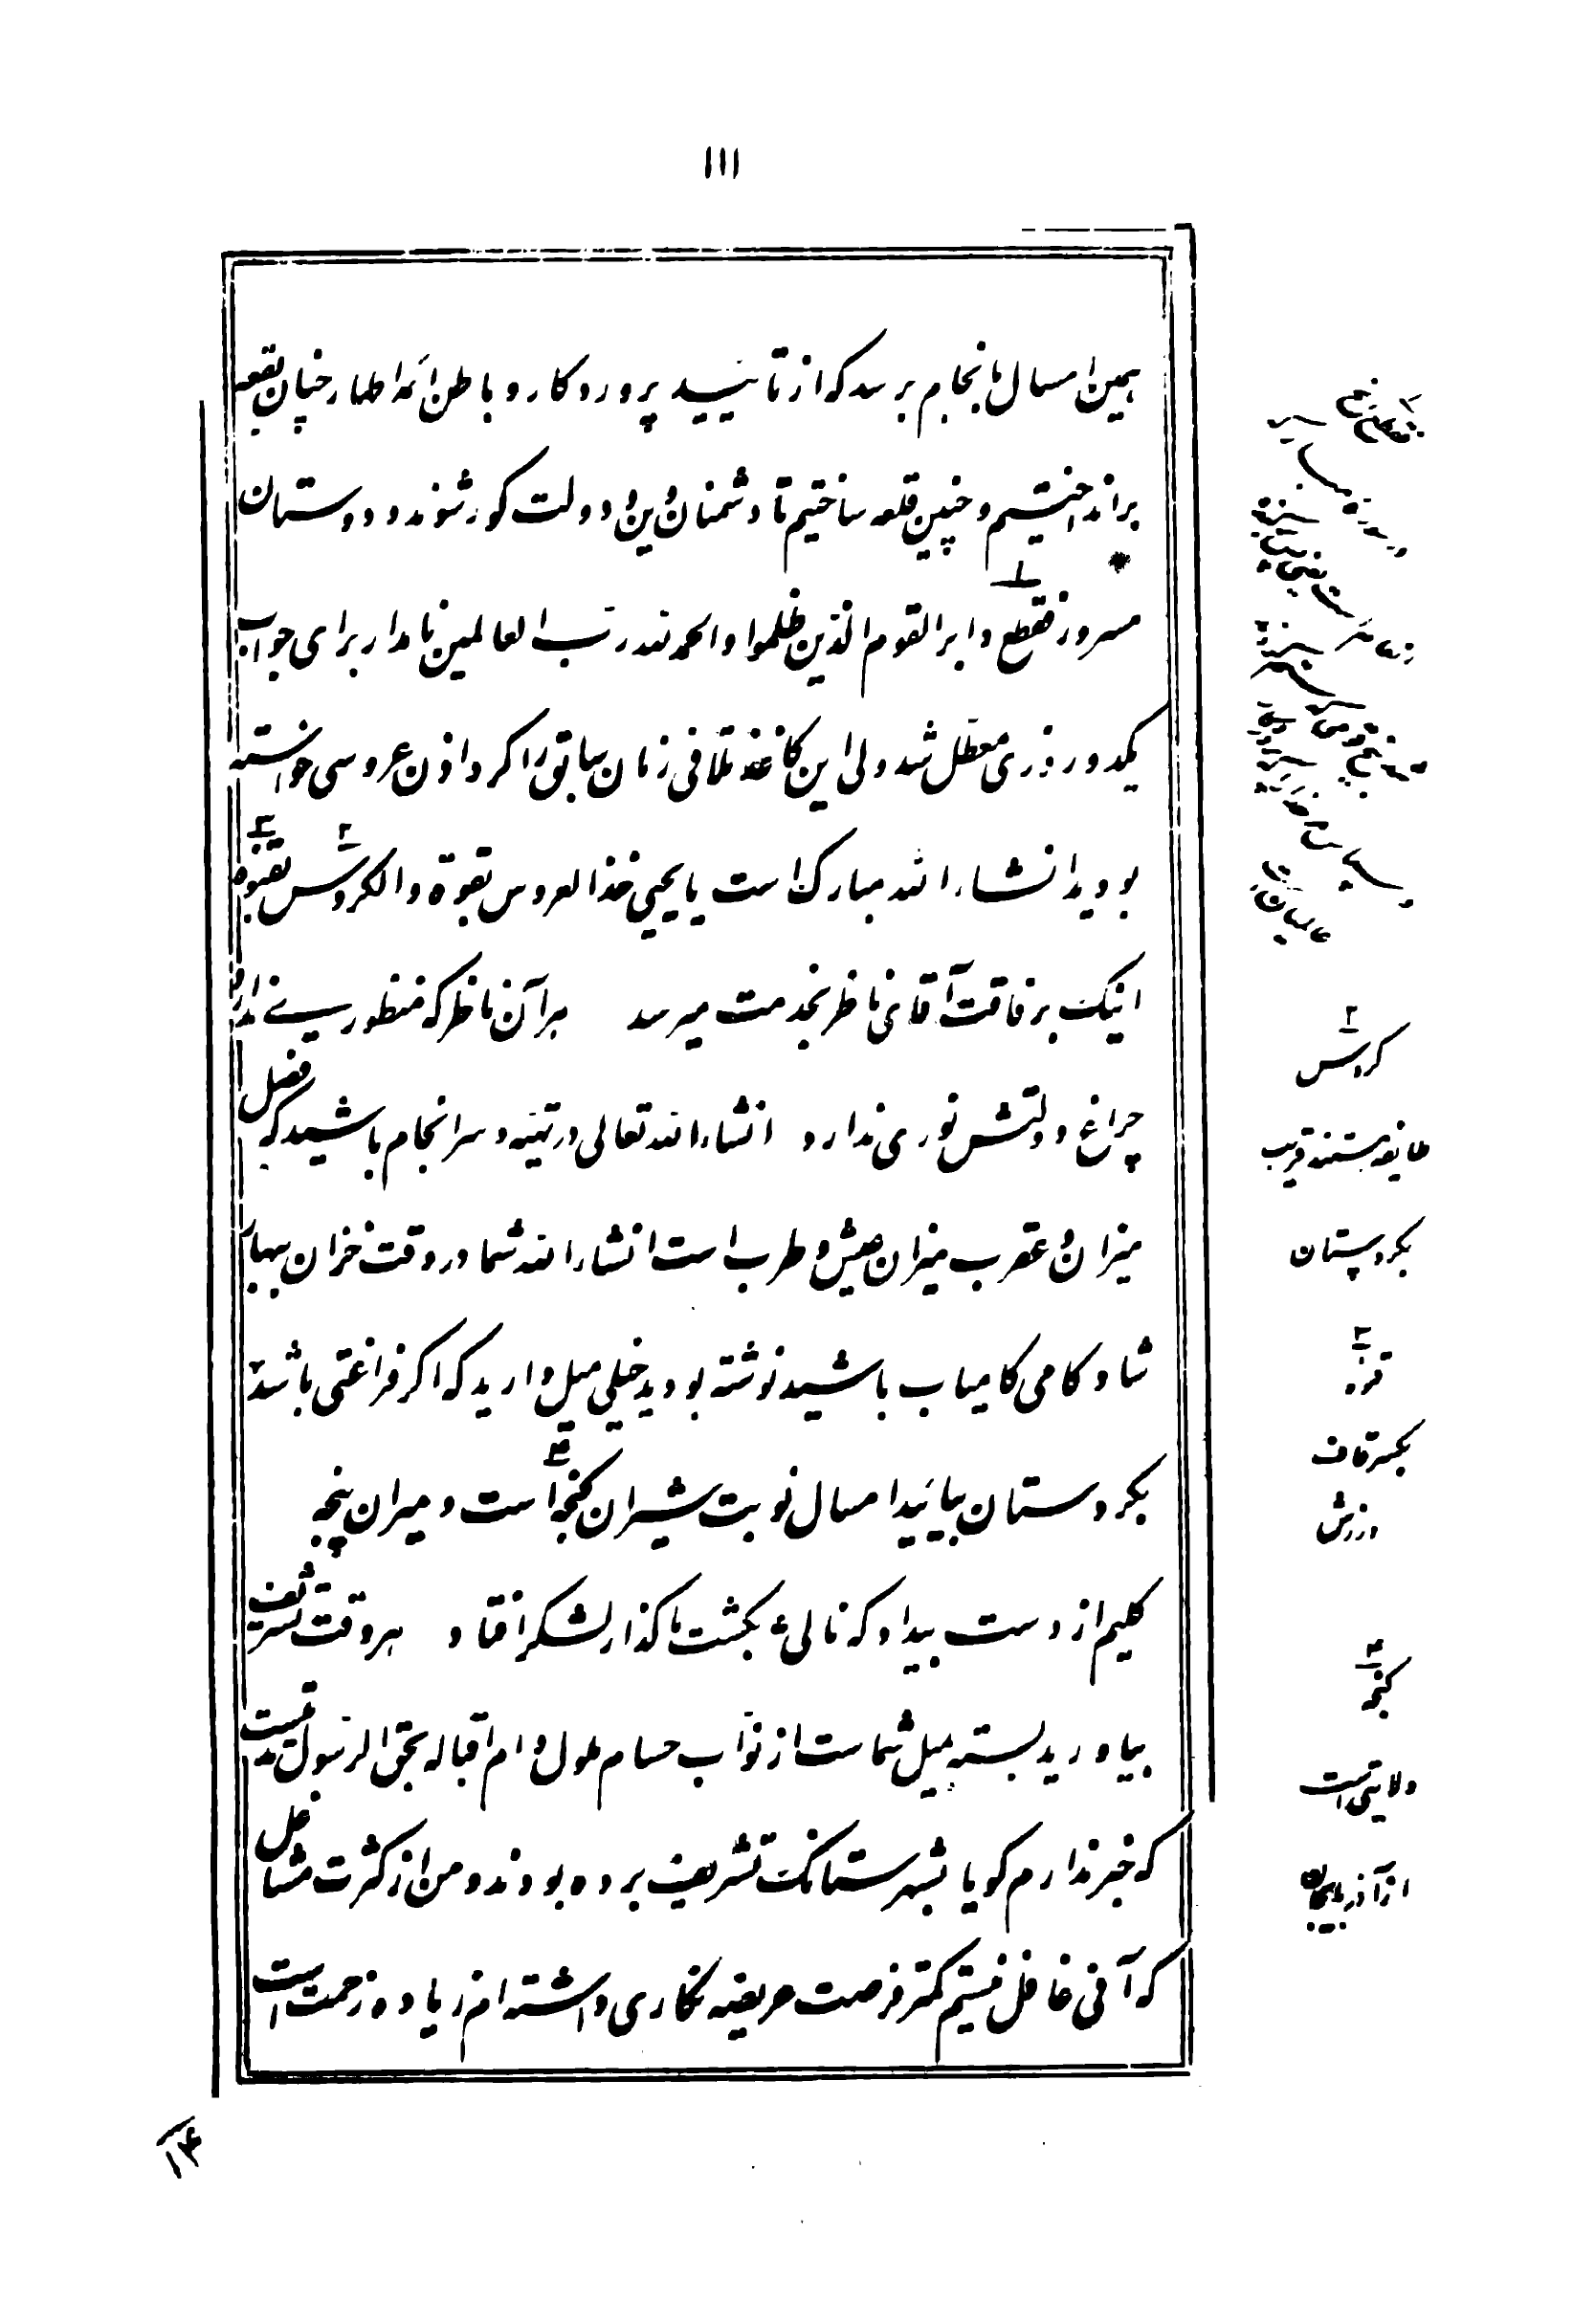 ۱۱۱
همین امسال بانجام برسد که از تائید پروردکار و باطن ائمه اطهار چنان بقعه
برانداختیم و چنین قلعه ساختیم تا دشمنان دین و دولت کور شوند و دوستان
مسرور فقطع دابر القوم الذین ظلموا والحمد لله رب العالمین نامدار برای جواب
یکدو روزی معطل شد ولی این کاغذ تلافی زمان سابق را کرد اذن عروسی خواسته
بودید انشاء الله مبارک است یا یحیی خذ العروس بقوة والکروش بقزه
اینک برفاقت آقای ناظر بخدمت میرسد هر آن ناظر که منظوری ندارد
چراغ دولتش نوری ندارد انشاء الله تعالی در تهیه و سرانجام باشید که فصل
میزان و عقرب میزان عیش و طرب است انشاء الله شما در وقت خزان ببهار
شادکامی کامیاب باشید نوشته بودید خیلی میل دارید که اکر فراغتی باشد
بکردستان بیائید امسال نوبت شیران کنجه است و میران پنجه
کلیم از دست بیداد که نالی بکشت ما کذار لشکر افتاد هر وقت تشریف
بیاورید بسته بمیل شماست از نواب حسام طول دام اقباله بحق الرسول مدتیست
که خبر ندارم کویا بشهر ستانک تشریف برده بودند و من از کثرت مشاغل
که آنی غافل نیستم کمتر فرصت عریضه نکاری داشته ام زیاده زحمت است
۲
کروس
طایفه هستند قریب
بکردستان
۳
قزه
بکسر قاف
ورزش
۴
کنجه
ولایتی است
از آذربایجان
۱۴